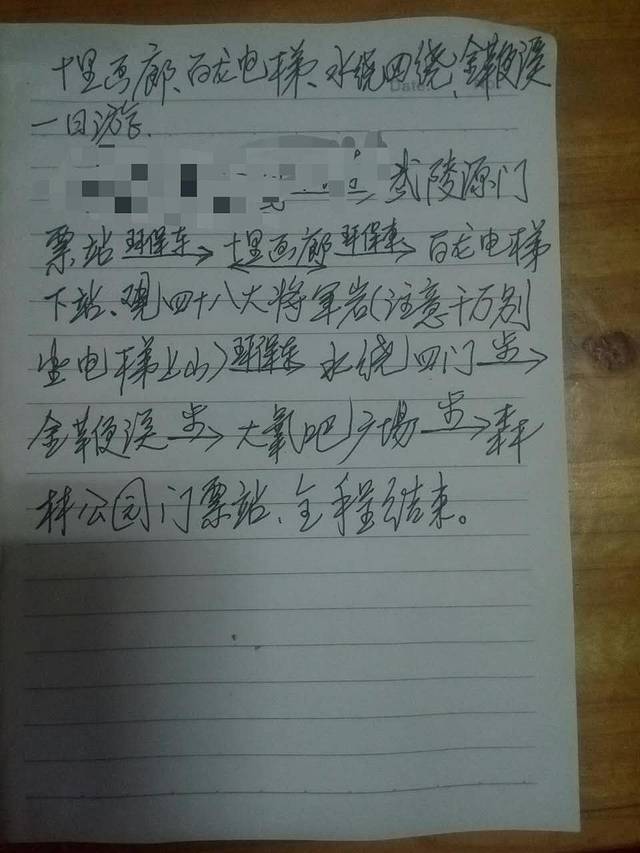 十里画廊、百龙电梯、水绕四绕、金鞭溪
Date.
一日游.
武陵源门
票站 环保车→ 十里画廊 环保车→ 百龙电梯
下站、观四十八大将军岩(注意千万别
坐电梯上山) 环保车 水绕四门 步→
金鞭溪 步→ 大氧吧广场 步→ 森
林公园门票站、全程结束。